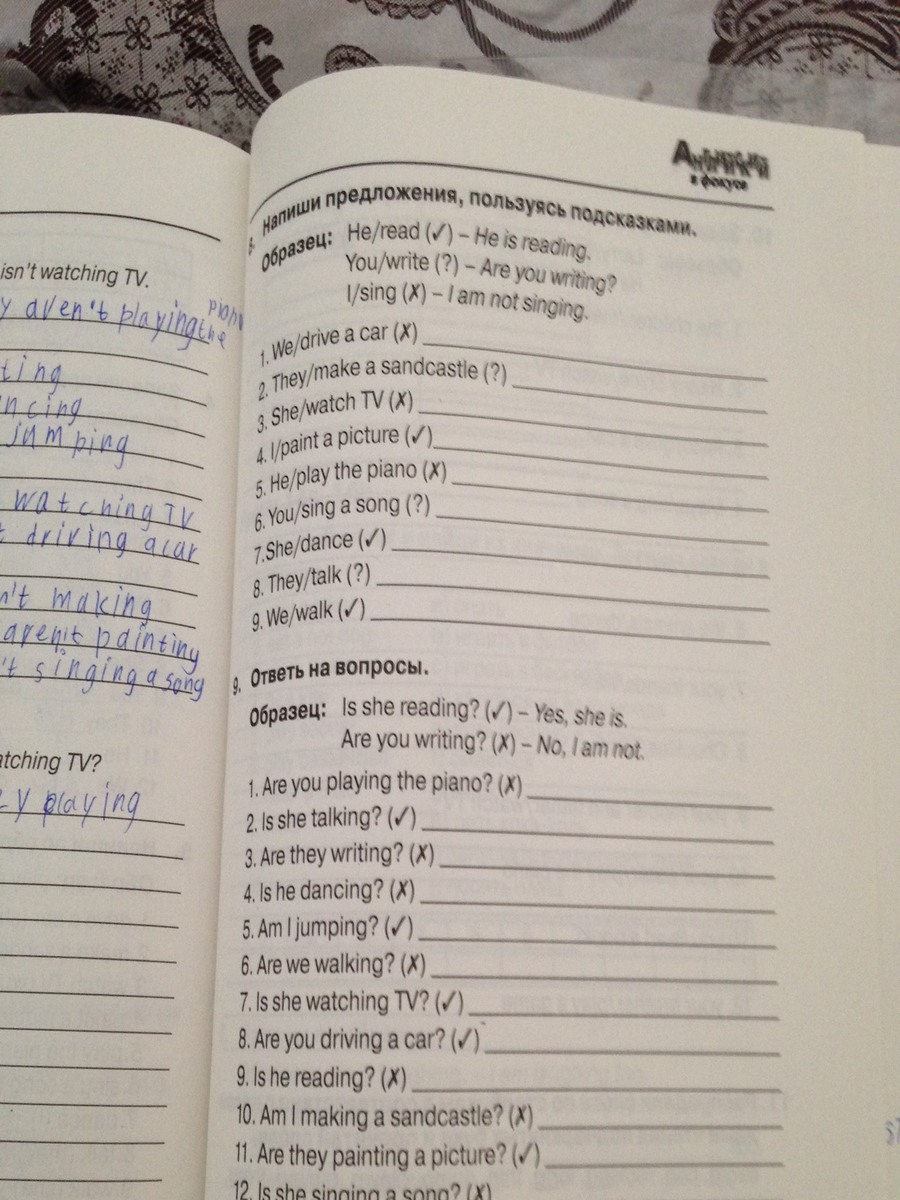 isn't watching TV.
y aren't playing the
ting
ncing
jumping
watching TV
t driving a car
n't making
aren't painting
't singing a song
atching TV?
playing
Английский
в фокусе
Напиши предложения, пользуясь подсказками.
Образец: He/read (✓) – He is reading.
You/write (?) – Are you writing?
I/sing (✗) – I am not singing.
1. We/drive a car (✗)
2. They/make a sandcastle (?)
3. She/watch TV (✗)
4. I/paint a picture (✓)
5. He/play the piano (✗)
6. You/sing a song (?)
7. She/dance (✓)
8. They/talk (?)
9. We/walk (✓)
9. Ответь на вопросы.
Образец: Is she reading? (✓) – Yes, she is.
Are you writing? (✗) – No, I am not.
1. Are you playing the piano? (✗)
2. Is she talking? (✓)
3. Are they writing? (✗)
4. Is he dancing? (✗)
5. Am I jumping? (✓)
6. Are we walking? (✗)
7. Is she watching TV? (✓)
8. Are you driving a car? (✓)
9. Is he reading? (✗)
10. Am I making a sandcastle? (✗)
11. Are they painting a picture? (✓)
12. Is she singing a song? (✗)